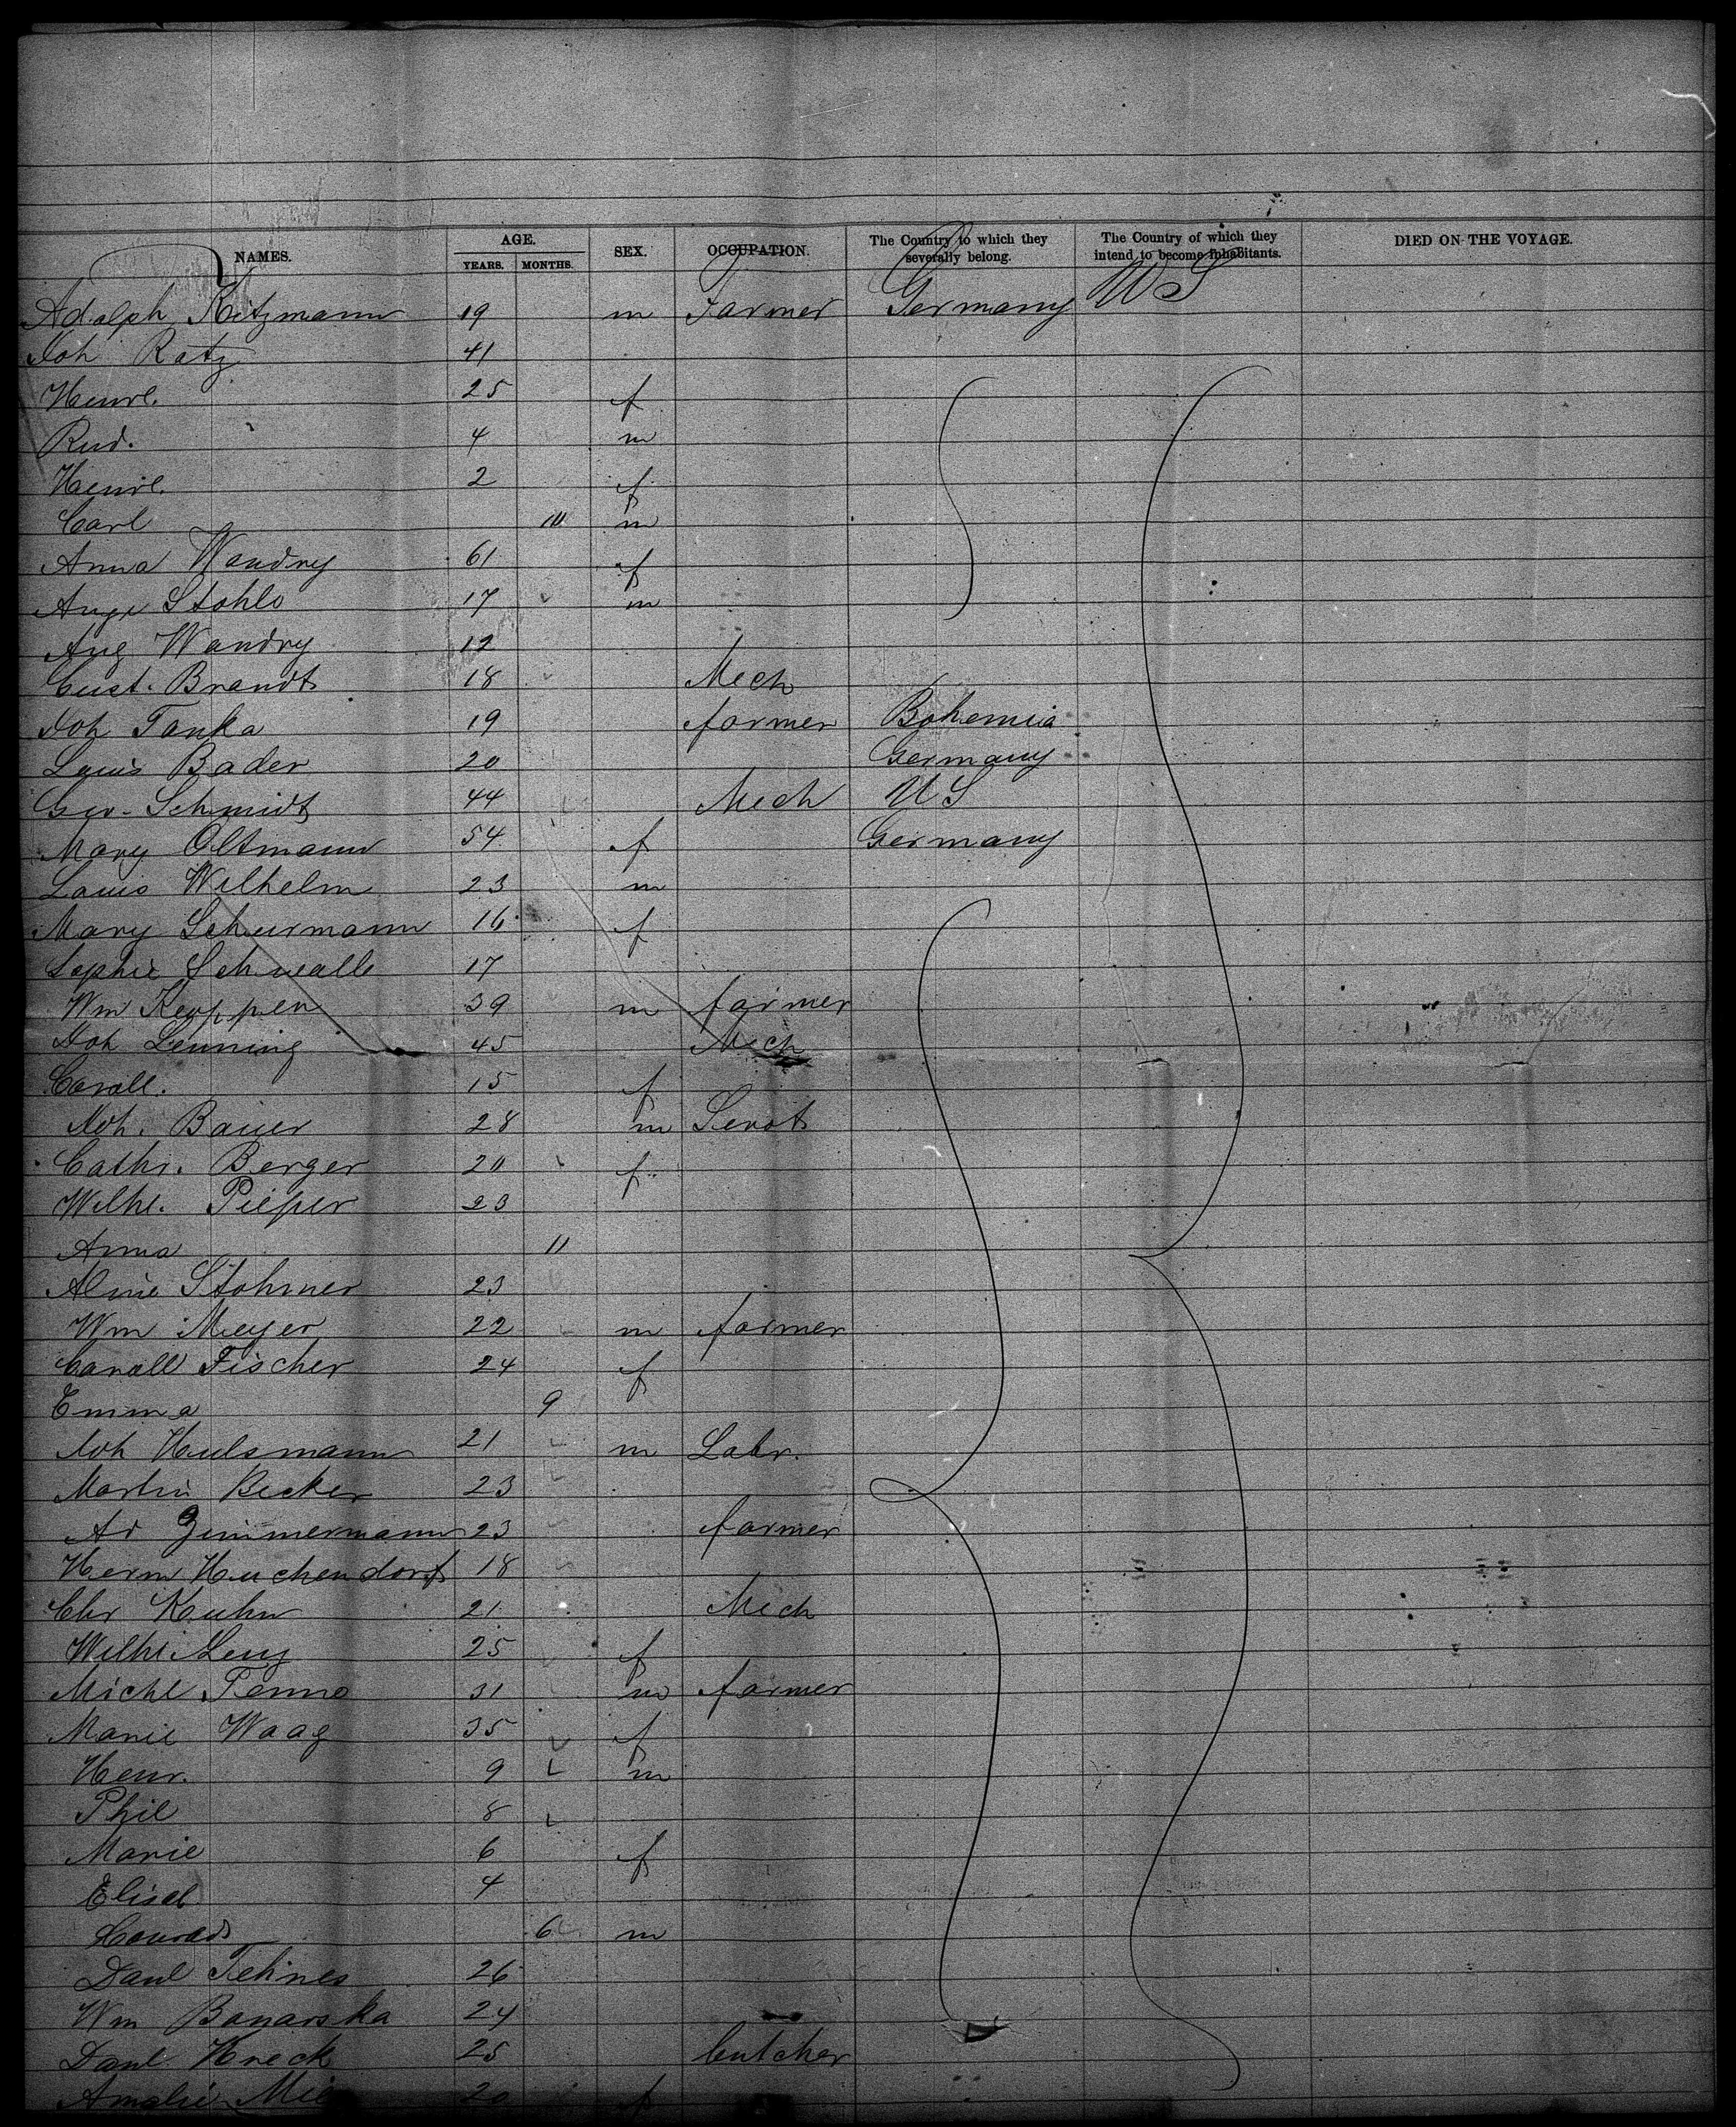 NAMES. AGE. YEARS. MONTHS. SEX. OCCUPATION. The Country to which they severally belong. The Country of which they intend to become inhabitants. DIED ON THE VOYAGE.
Adolph Kitzmann 19 m Farmer Germany US
Joh Ratz 41
Henrl. 25 f
Rud. 4 m
Henrl. 2 f
Carl 10 m
Anna Wandry 61 f
Stohlo 17 m
Aug Wandry 12
Gust. Brandt 18 Mech
Joh Tanka 19 farmer Bohemia
Louis Bader 20 Germany
Geo. Schmidt 44 Mech US
Mary Oltmann 54 f Germany
Louis Wilhelm 23 m
Mary Schurmann 16 f
Sophie Schwalle 17
Wm Keoppen 39 m farmer
Joh Lenning 45 Mech
Caroll. 15 f
Joh. Bauer 28 m Servt
Cathr. Berger 20 f
Wilhl. Pieper 23
Anna 11
Aline Stohmer 23
Wm Meyer 22 m farmer
Caroll Fischer 24 f
Emma 9
Joh Hulsmann 21 m Labr.
Martin Becker 23
Ad Zimmermann 23 farmer
Herm Huchendorf 18
Chr Kuhn 21 Mech
Wilhl. Leng 25 f
Michl. Tenno 31 m farmer
Marie Waag 35 f
Henr. 9 m
Phil 8
Marie 6 f
Elisab 4
Conrad 6 m
Danl 26
Wm Banarska 24
Danl Kneck 25 butcher
Amalie 20 f